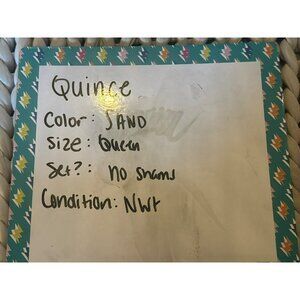 Quince
Color: SAND
Size: Queen
Set?: no shams
Condition: NWT